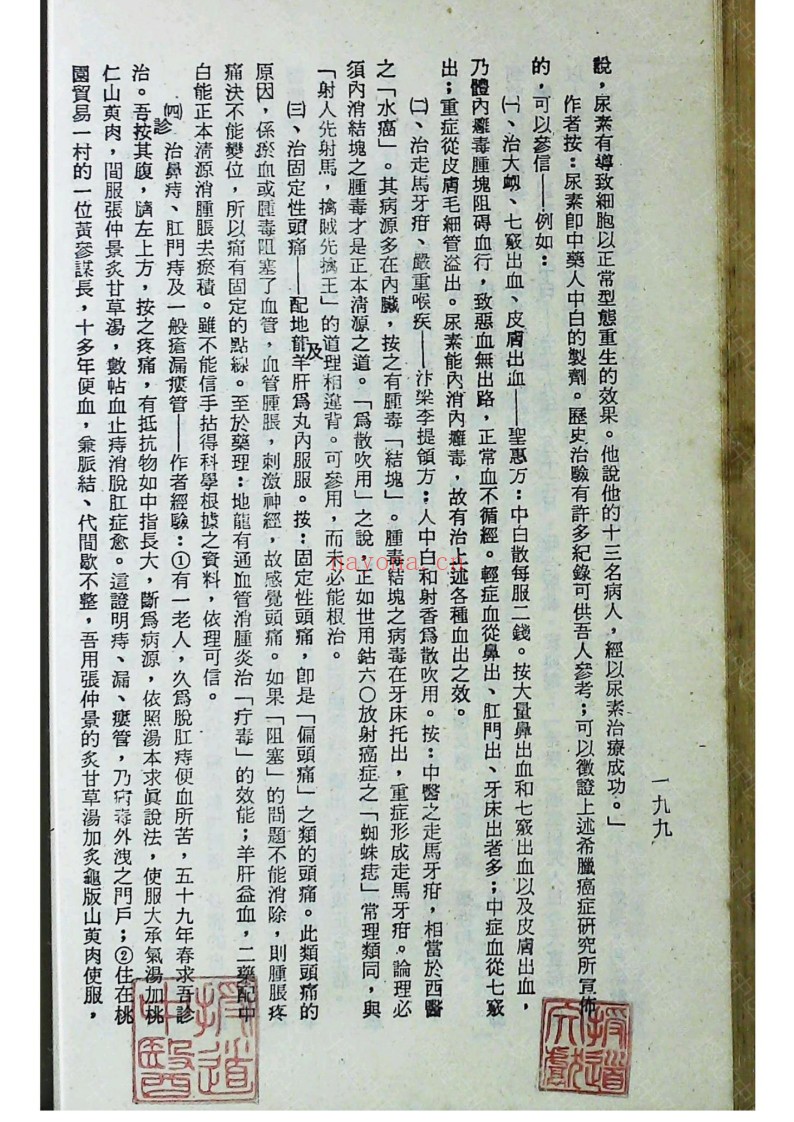 一九九
說，尿素有導致細胞以正常型態重生的效果。他說他的十三名病人，經以尿素治療成功。」
作者按：尿素卽中藥人中白的製劑。歷史治驗有許多紀錄可供吾人參考；可以徵證上述希臘癌症研究所宣佈
的，可以參信——例如：
㈠、治大衂、七竅出血、皮膚出血——聖惠方：中白散每服二錢。按大量鼻出血和七竅出血以及皮膚出血，
乃體內癰毒腫塊阻碍血行，致惡血無出路，正常血不循經。輕症血從鼻出、肛門出、牙床出者多；中症血從七竅
出；重症從皮膚毛細管溢出。尿素能內消內癰毒，故有治上述各種血出之效。
㈡、治走馬牙疳、嚴重喉疾——汴梁李提領方：人中白和射香爲散吹用。按：中醫之走馬牙疳，相當於西醫
之「水癌」。其病源多在內臟，按之有腫毒「結塊」。腫毒結塊之病毒在牙床托出，重症形成走馬牙疳。論理必
須內消結塊之腫毒才是正本清源之道。「爲散吹用」之說，正如世用鈷六〇放射癌症之「蜘蛛痣」常理類同，與
「射人先射馬，擒賊先擒王」的道理相違背。可參用，而未必能根治。
㈢、治固定性頭痛——配地龍及羊肝爲丸內服服。按：固定性頭痛，卽是「偏頭痛」之類的頭痛。此類頭痛的
原因，係瘀血或腫毒阻塞了血管，血管腫脹，刺激神經，故感覺頭痛。如果「阻塞」的問題不能消除，則腫脹疼
痛決不能變位，所以痛有固定的點線。至於藥理：地龍有通血管消腫炎治「疔毒」的效能；羊肝益血，二藥配中
白能正本淸源消腫脹去瘀積。雖不能信手拈得科學根據之資料，依理可信。
㈣診 治鼻痔、肛門痔及一般瘡漏瘻管——作者經驗：①有一老人，久爲脫肛痔便血所苦，五十九年春求吾診
治。吾按其腹，臍左上方，按之疼痛，有抵抗物如中指長大，斷爲病源，依照湯本求眞說法，使服大承氣湯加桃
仁山萸肉，間服張仲景炙甘草湯，數帖血止痔消脫肛症愈。這證明痔、漏、瘻管，乃病毒外洩之門戶；②住在桃
園貿易一村的一位黃參謀長，十多年便血，兼脈結、代間歇不整，吾用張仲景的炙甘草湯加炙龜版山萸肉使服，
nayona.cn
授道文獻
授道中醫